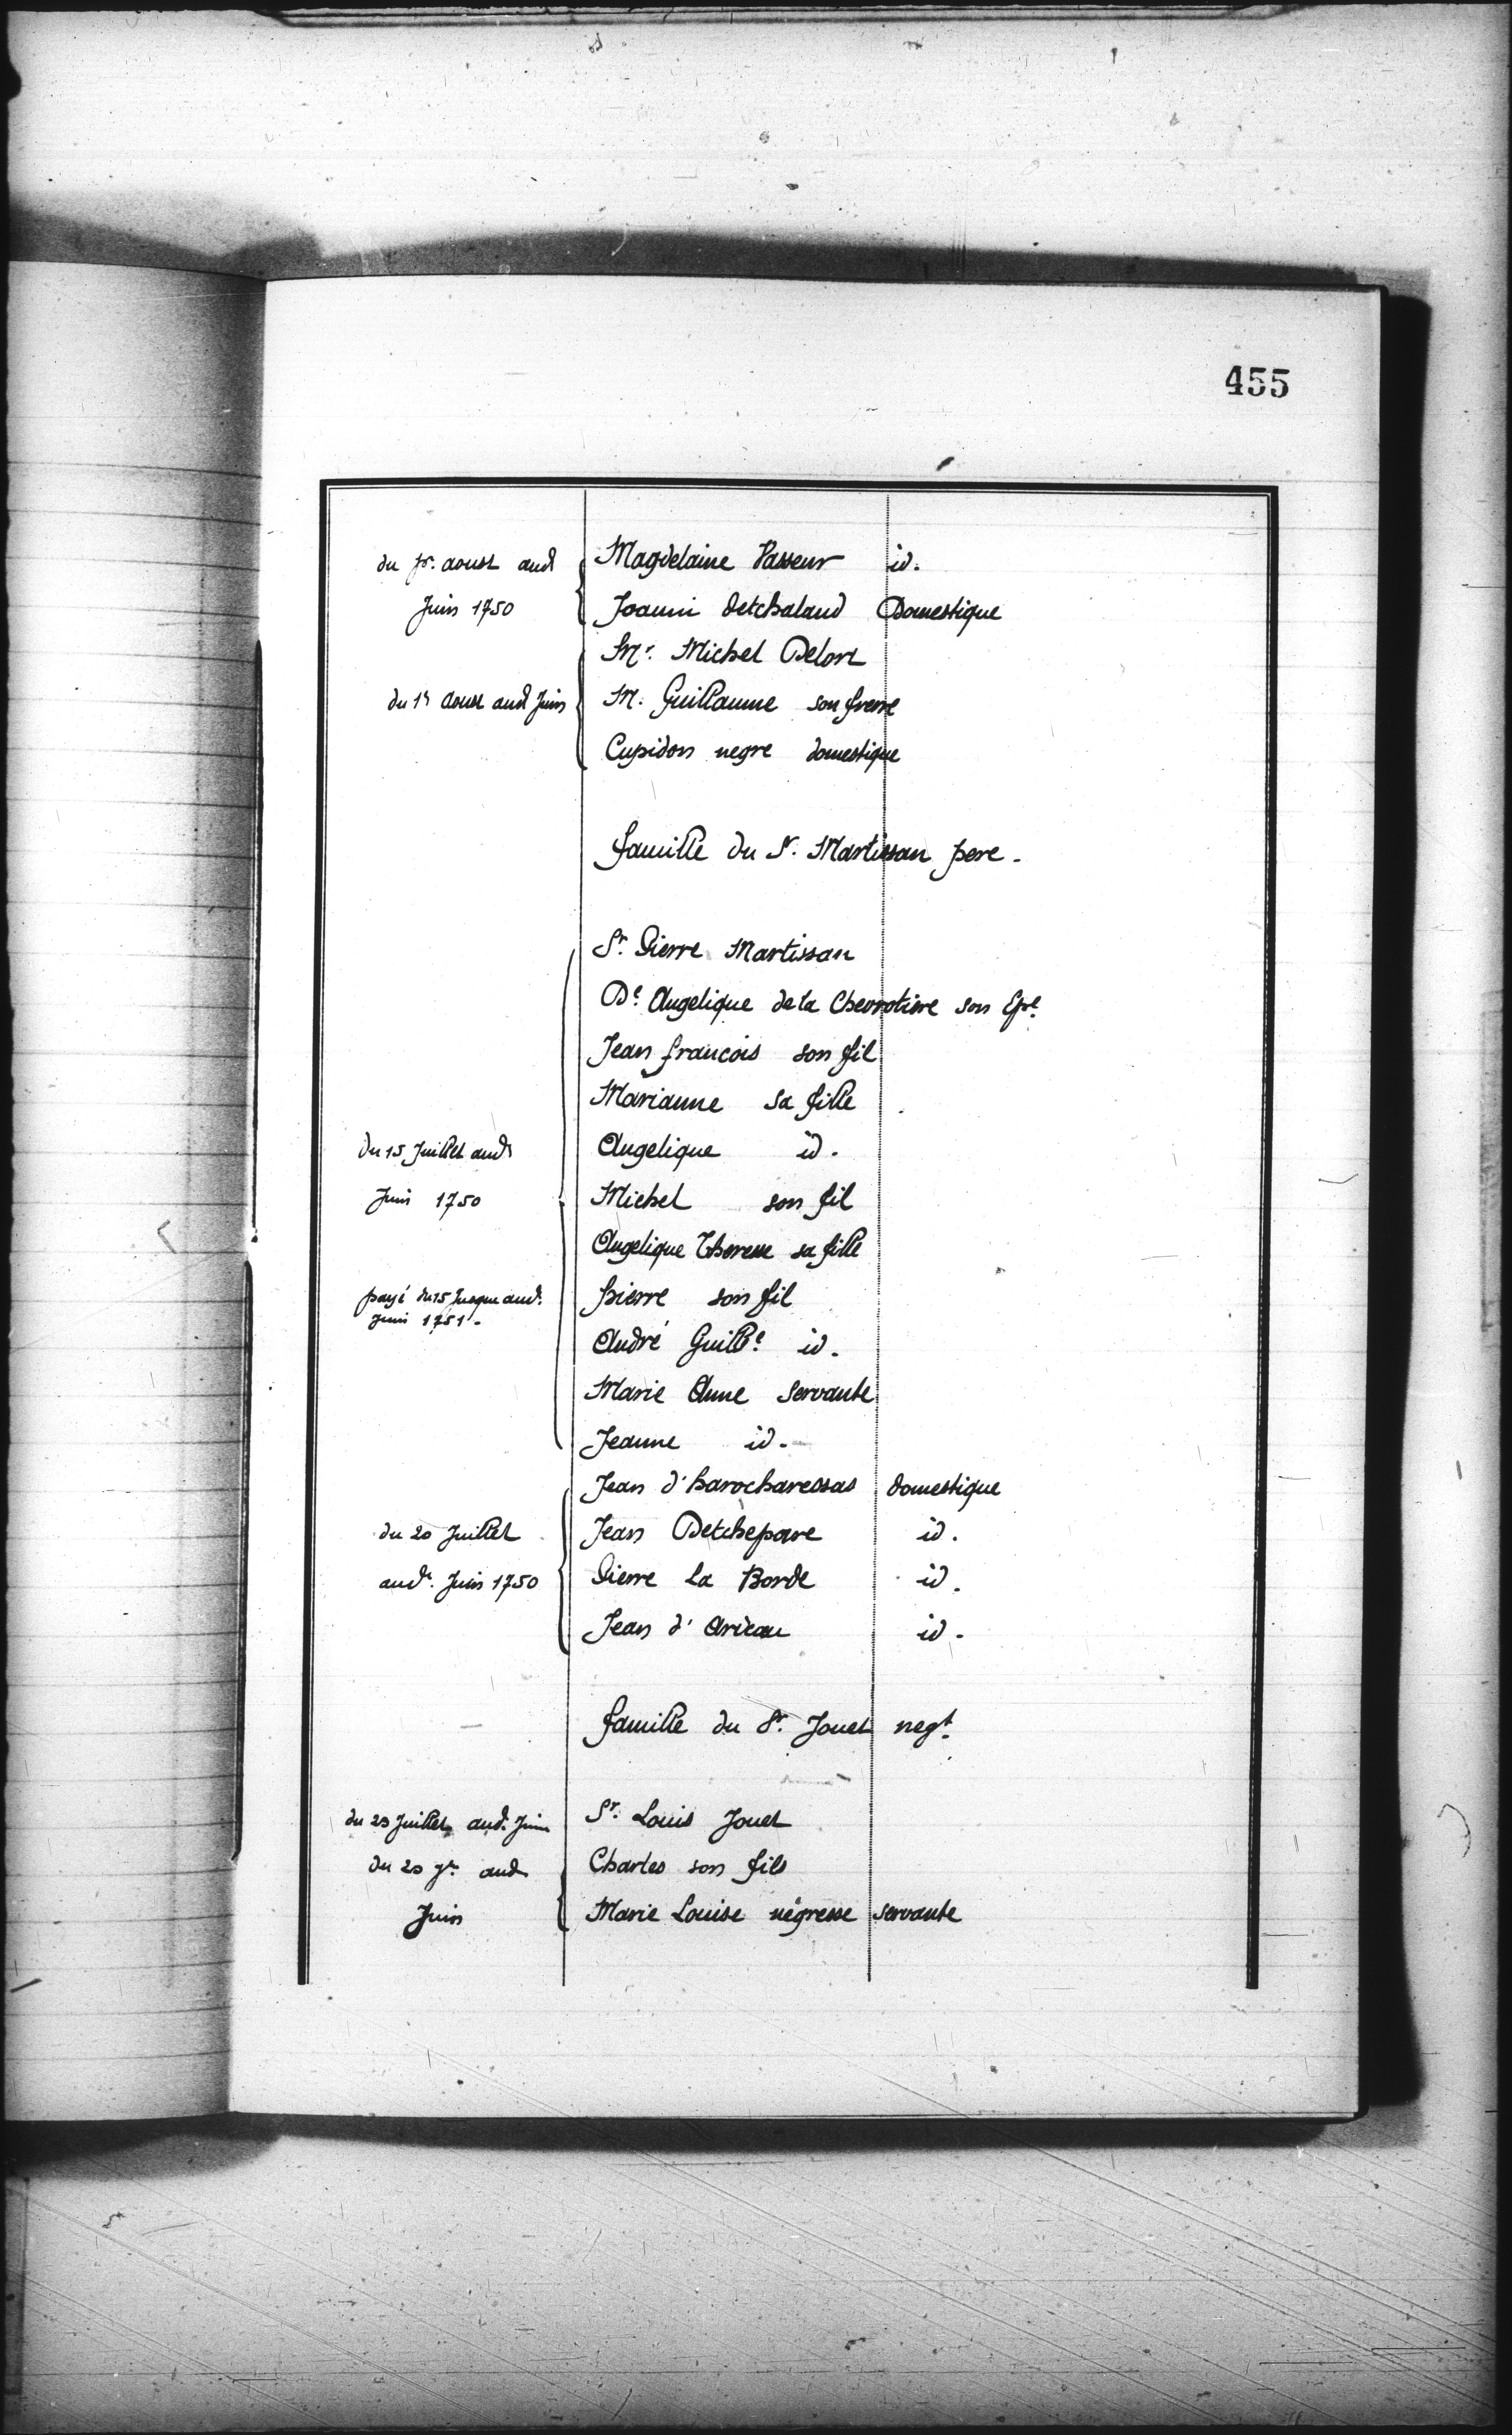 455
du pr. aoust aud Magdelaine Vasseur id.
Juin 1750 Joanni detchaland Domestique
Mr. Michel Delort
du 1r aoust aud Juin M. Guillaume son frerre
Cupidon negre domestique
famille du Sr. Martissan pere.
Sr. Pierre Martissan
De. Angelique de la Chevrotiere son Epe.
Jean francois son fil
Marianne sa fille
du 15 Juillet audt Angelique id.
Juin 1750 Michel son fil
Angelique Therese sa fille
payé du 15 Jusqu aud. pierre son fil
Juin 1751.
André Guille. id.
Marie Anne servante
Jeanne id.
Jean d'harocharessas domestique
du 20 Juillet Jean Detchepare id.
audt. Juin 1750 Pierre La Borde id.
Jean d' id.
famille du Sr. Jouet negt.
du 20 Juillet aud. Juin Sr. Louis Jouet
du 20 aud Charles son fils
Juin Marie Louise négresse servante